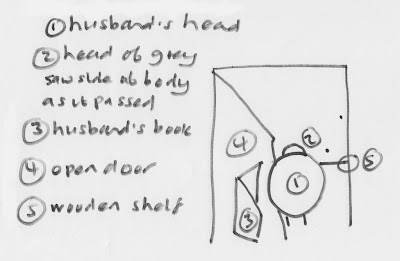 ① husband's head
② head of grey
saw side of body
as it passed
③ husband's book
④ open door
⑤ wooden shelf
④
②
⑤
①
③